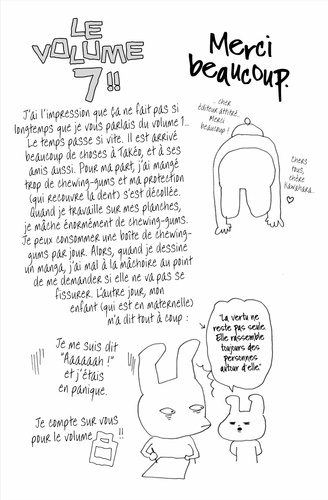 LE
VOLUME
7 !!
Merci
beaucoup.
... cher
éditeur attitré.
Merci
beaucoup !
Chers
tous,
chère
Kawahara...
J'ai l'impression que ça ne fait pas si
longtemps que je vous parlais du volume 1...
Le temps passe si vite. Il est arrivé
beaucoup de choses à Takéo, et à ses
amis aussi. Pour ma part, j'ai mangé
trop de chewing-gums et ma protection
(qui recouvre la dent) s'est décollée.
Quand je travaille sur mes planches,
je mâche énormément de chewing-gums.
Je peux consommer une boîte de chewing-
gums par jour. Alors, quand je dessine
un manga, j'ai mal à la mâchoire au point
de me demander si elle ne va pas se
fissurer. L'autre jour, mon
enfant (qui est en maternelle)
m'a dit tout à coup :
"La vertu ne
reste pas seule.
Elle rassemble
toujours des
personnes
autour d'elle."
Je me suis dit
"Aaaaaah !"
et j'étais
en panique.
Je compte sur vous
pour le volume 8 !!